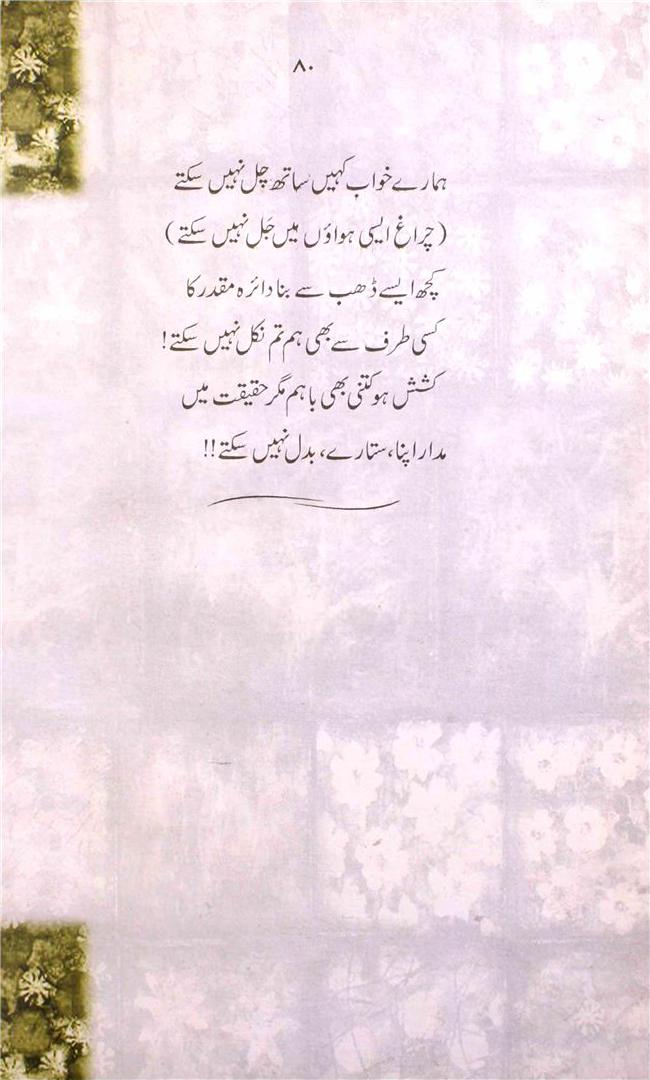 ۸۰
ہمارے خواب کہیں ساتھ چل نہیں سکتے
(چراغ ایسی ہواؤں میں جَل نہیں سکتے)
کچھ ایسے ڈھب سے بنا دائرہ مقدر کا
کسی طرف سے بھی ہم تم نکل نہیں سکتے!
کشش ہو کتنی بھی باہم مگر حقیقت میں
مدار اپنا، ستارے، بدل نہیں سکتے!!